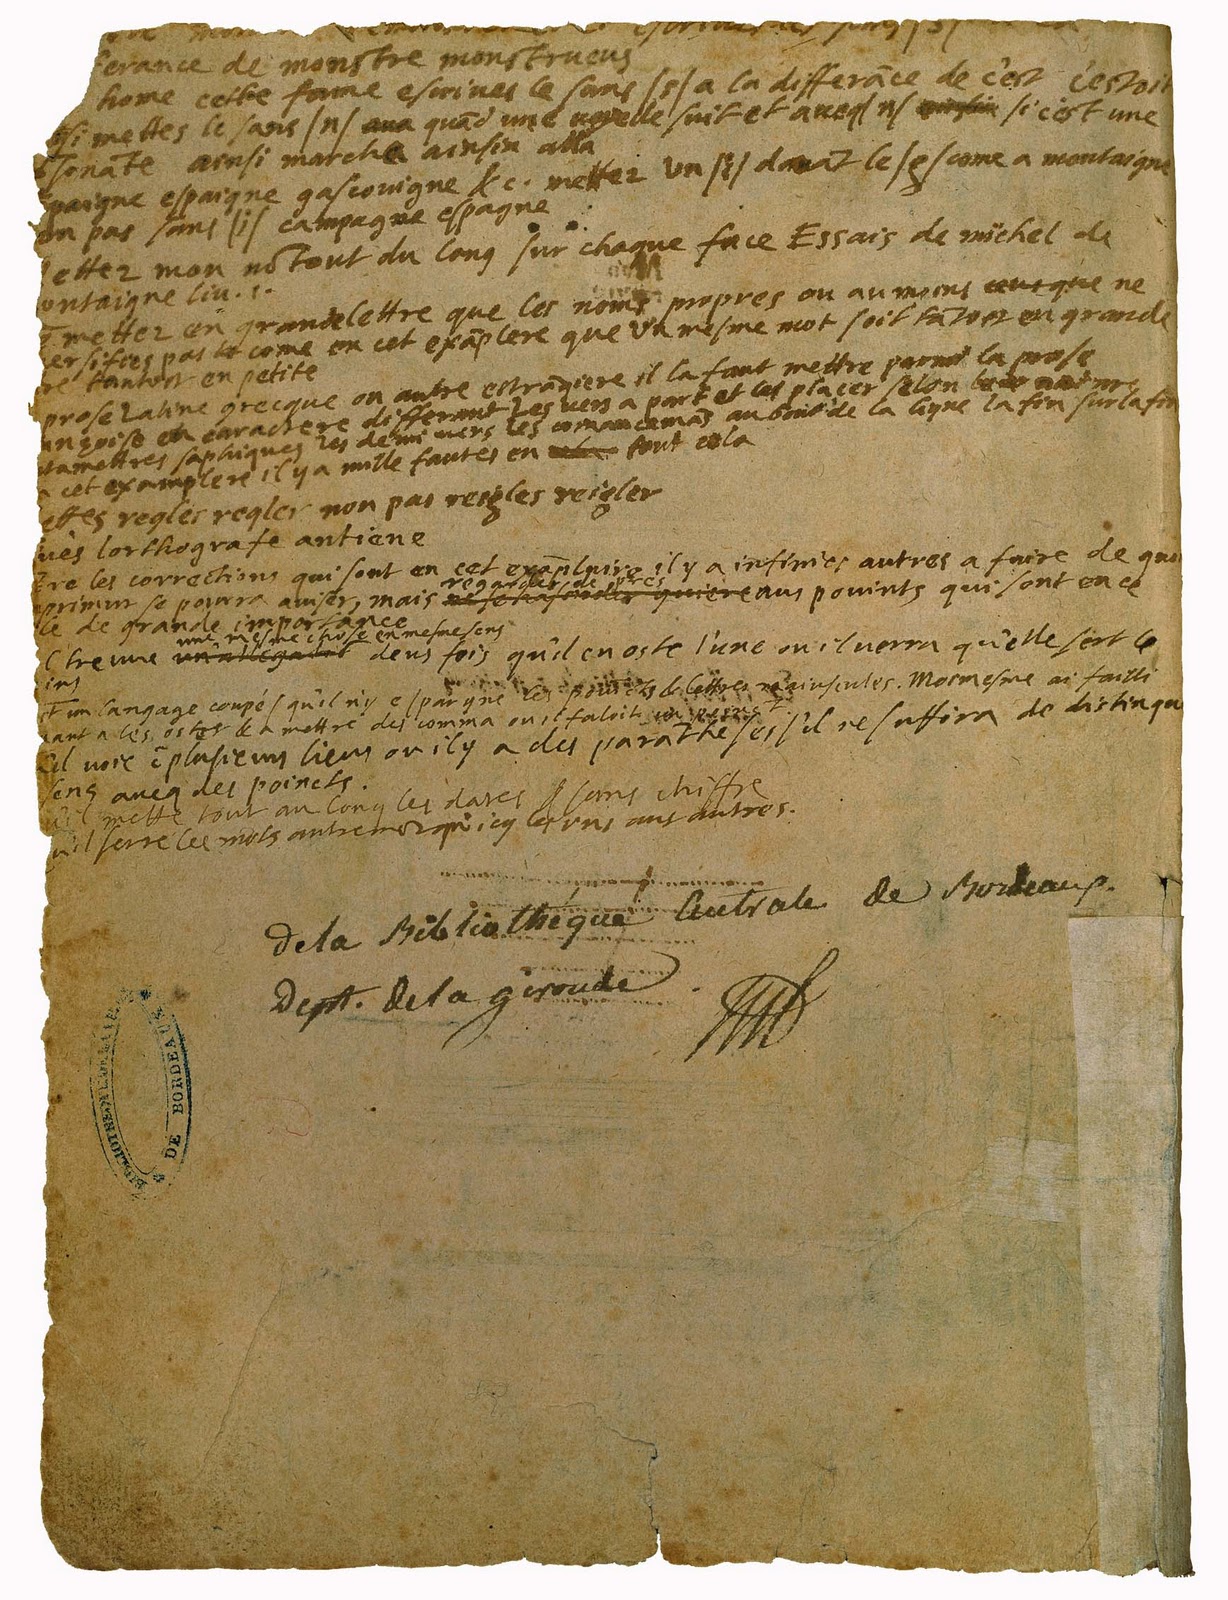 ferance de monstre monstrueus
home cette fame escrives le sans /s/ a la differāce de c'est c'estoit
si mettes le sans /n/ quād une voyelle suit et aveq /n/ si c'est une
sonāte ainsi marcha ainsin alla
paigne espaigne gascouigne &c. mettez un /i/ davāt le /g/ come a montaigne
on pas sans /i/ campagne espagne
ettez mon nō tout du long sur chaque face Essais de michel de
ontaigne liv. 1.
mettez en grande lettre que les noms propres ou au moins que ne
ersifies pas come en cet exāplere que un mesme mot soit tātost en grande
re tantost en petite
prose latine grecque ou autre estrāgiere il la faut mettre parmi la prose
ançoise en caractere differant les vers a part et les placer selon leur nature
ntamettres saphiques les demi vers les comancemās au bout de la ligne la fin sur la fin
cet examplere il y a mille fautes en tout cela
ettes regles regler non pas reigles reigler
ives lorthografe antiene
tre les corrections qui sont en cet exāplaire il y a infinies autres a faire de quoi
primur se pourra aviser, mais regarder de pres aus pouints qui sont en ce
le de grande importance
treuve une mesme chose en mesme sens deus fois qu'il en oste l'une ou il verra qu'elle sert le
ins
st un langage coupé qu'il n'y espargne les poincts & lettres maiuscules. Moimesme ai failli
vant a les oster & a mettre des comma ou il faloit un poinct
il voie ē plusieurs lieus ou il y a des parātheses s'il ne suffira de distinguer
sens aveq des poincts.
il mette tout au long les dates & sans chiffre
il serre les mots autremāt qu'icy les uns aus autres.
De la Bibliothéque Centrale de Bordeaux.
Dept. de la gironde
DE BORDEAUX